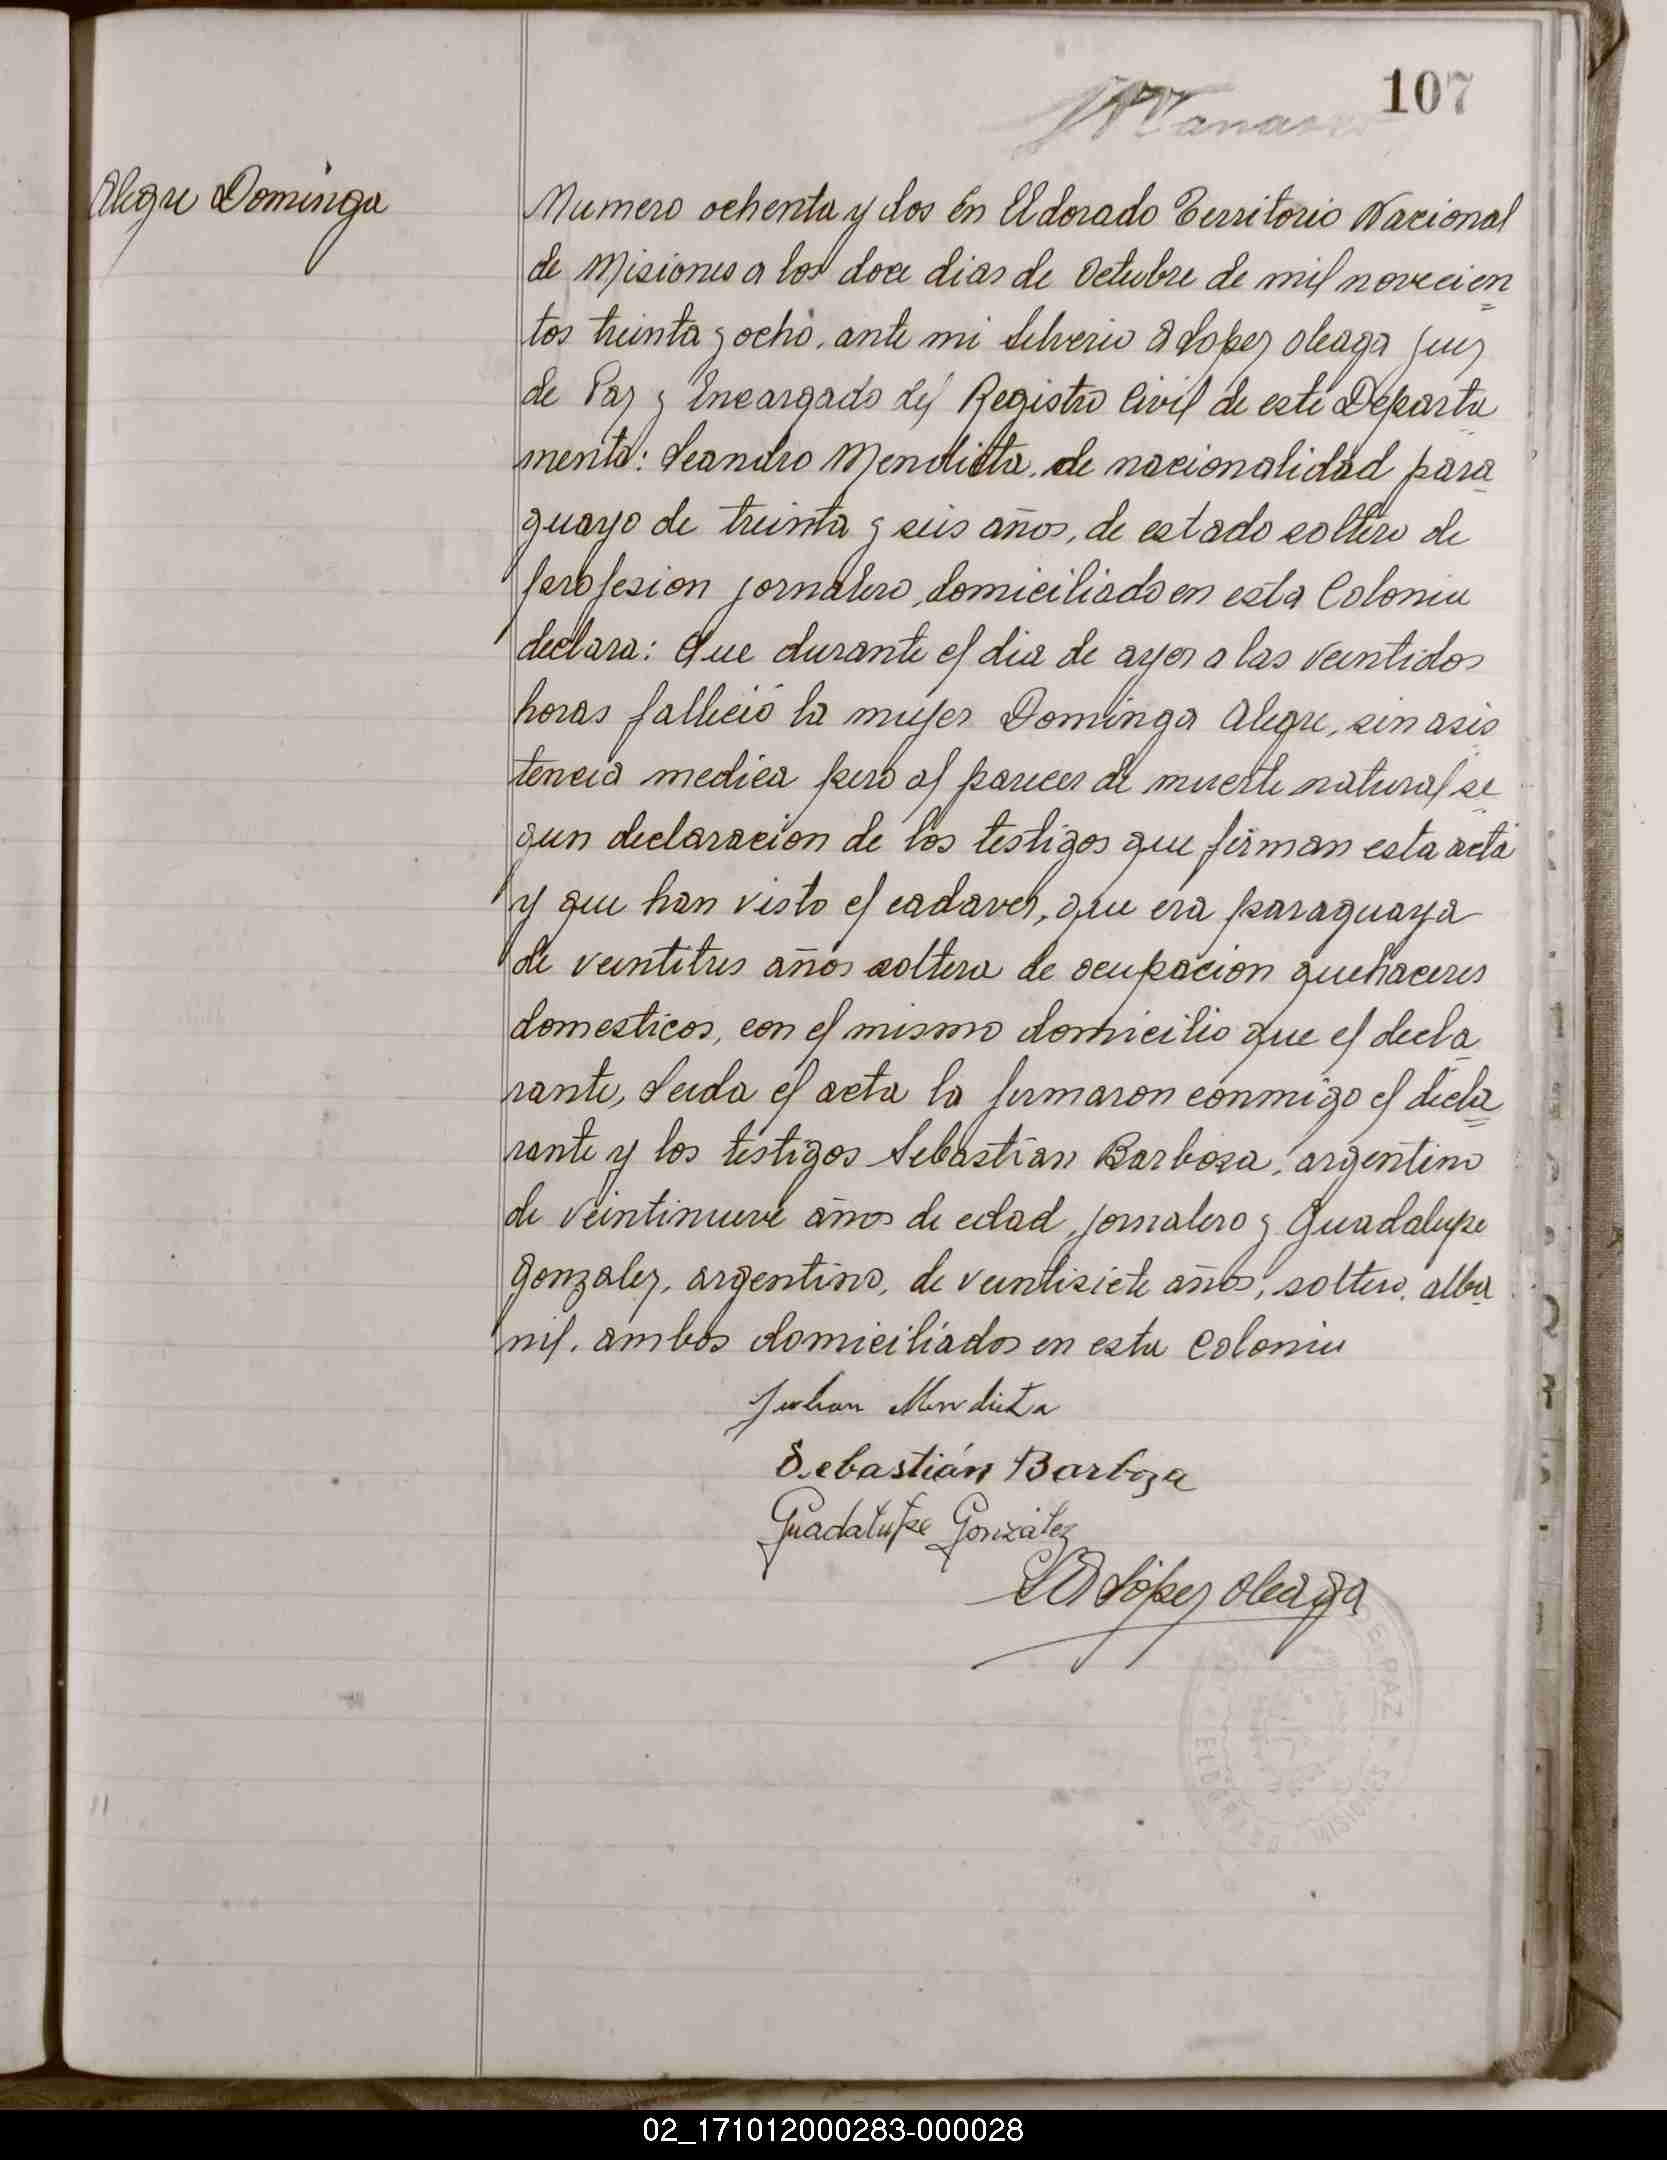 107
Alegre Dominga
Numero ochenta y dos En Eldorado Territorio Nacional
de Misiones a los doce dias de Octubre de mil novecien
tos treinta y ocho, ante mi Silverio A Lopez Oleaga Juez
de Paz y Encargado del Registro Civil de este Departa
mento: Leandro Mendieta, de nacionalidad para
guayo de treinta y seis años, de estado soltero de
profesion jornalero, domiciliado en esta Colonia
declara: Que durante el dia de ayer a las veintidos
horas falleció la mujer Dominga Alegre, sin asis
tencia medica pero al parecer de muerte natural se
gun declaracion de los testigos que firman esta acta
y que han visto el cadaver, que era paraguaya
de veintitres años soltera de ocupacion quehaceres
domesticos, con el mismo domicilio que el decla
rante, Leida el acta la firmaron conmigo el decla
rante y los testigos Sebastian Barboza, argentino
de veintinueve años de edad, jornalero y Guadalupe
Gonzalez, argentino, de veintisiete años, soltero, alba
nil, ambos domiciliados en esta Colonia
Mendieta
Sebastián Barboza
Guadalupe González
SA López Oleaga
DE PAZ
ELDORADO
MISIONES
02_171012000283-000028